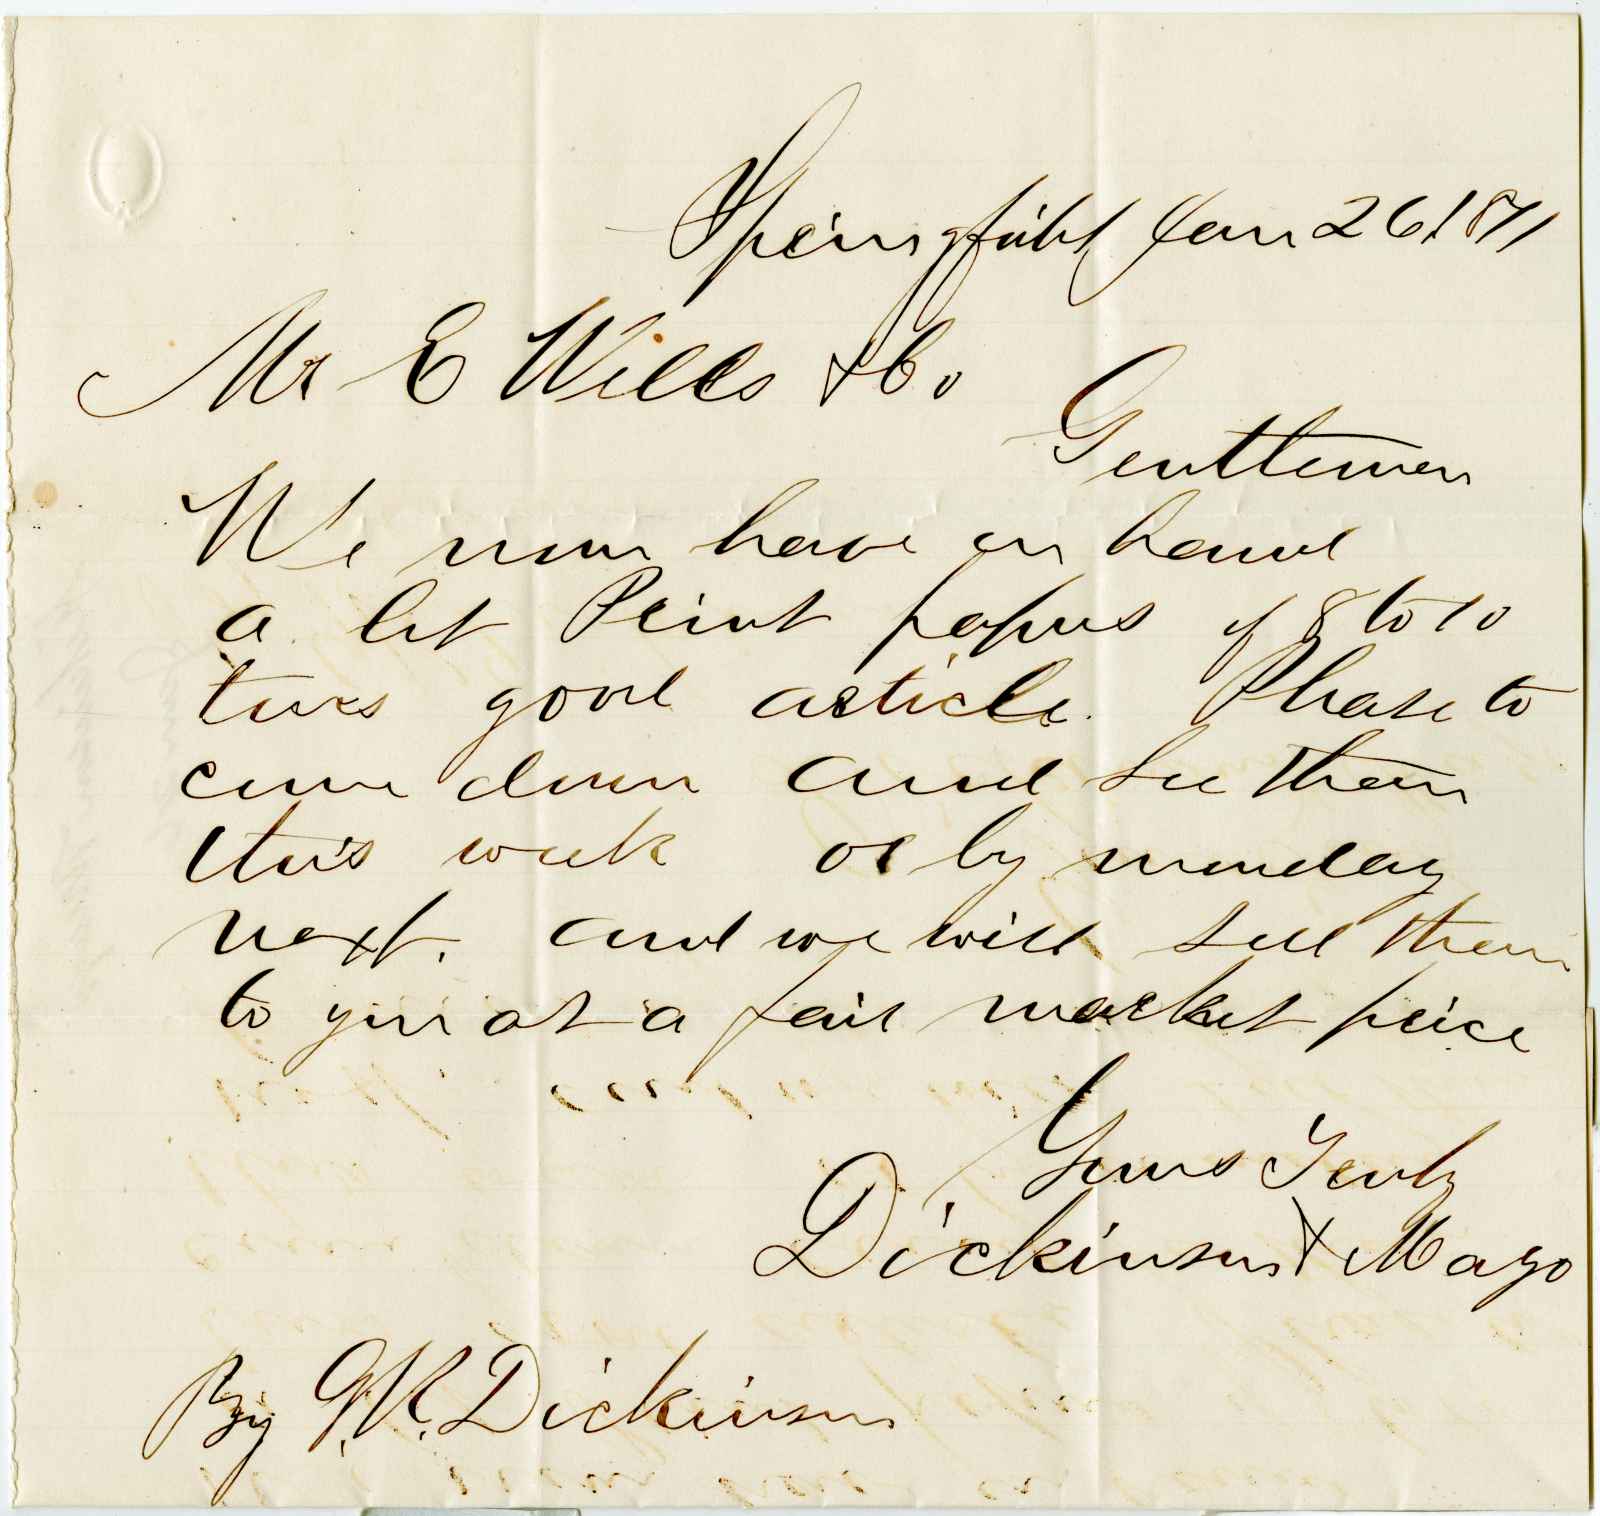 Springfield Jan 26 1871
Mr E Wills & Co
Gentlemen
We now have on hand
a lot Print papers of 8 to 10
tons good article. Please to
come down and see them
this week or by monday
next. and we will sell them
to you at a fair market price
Yours Truly
Dickinson & Mayo
By G.R. Dickinson